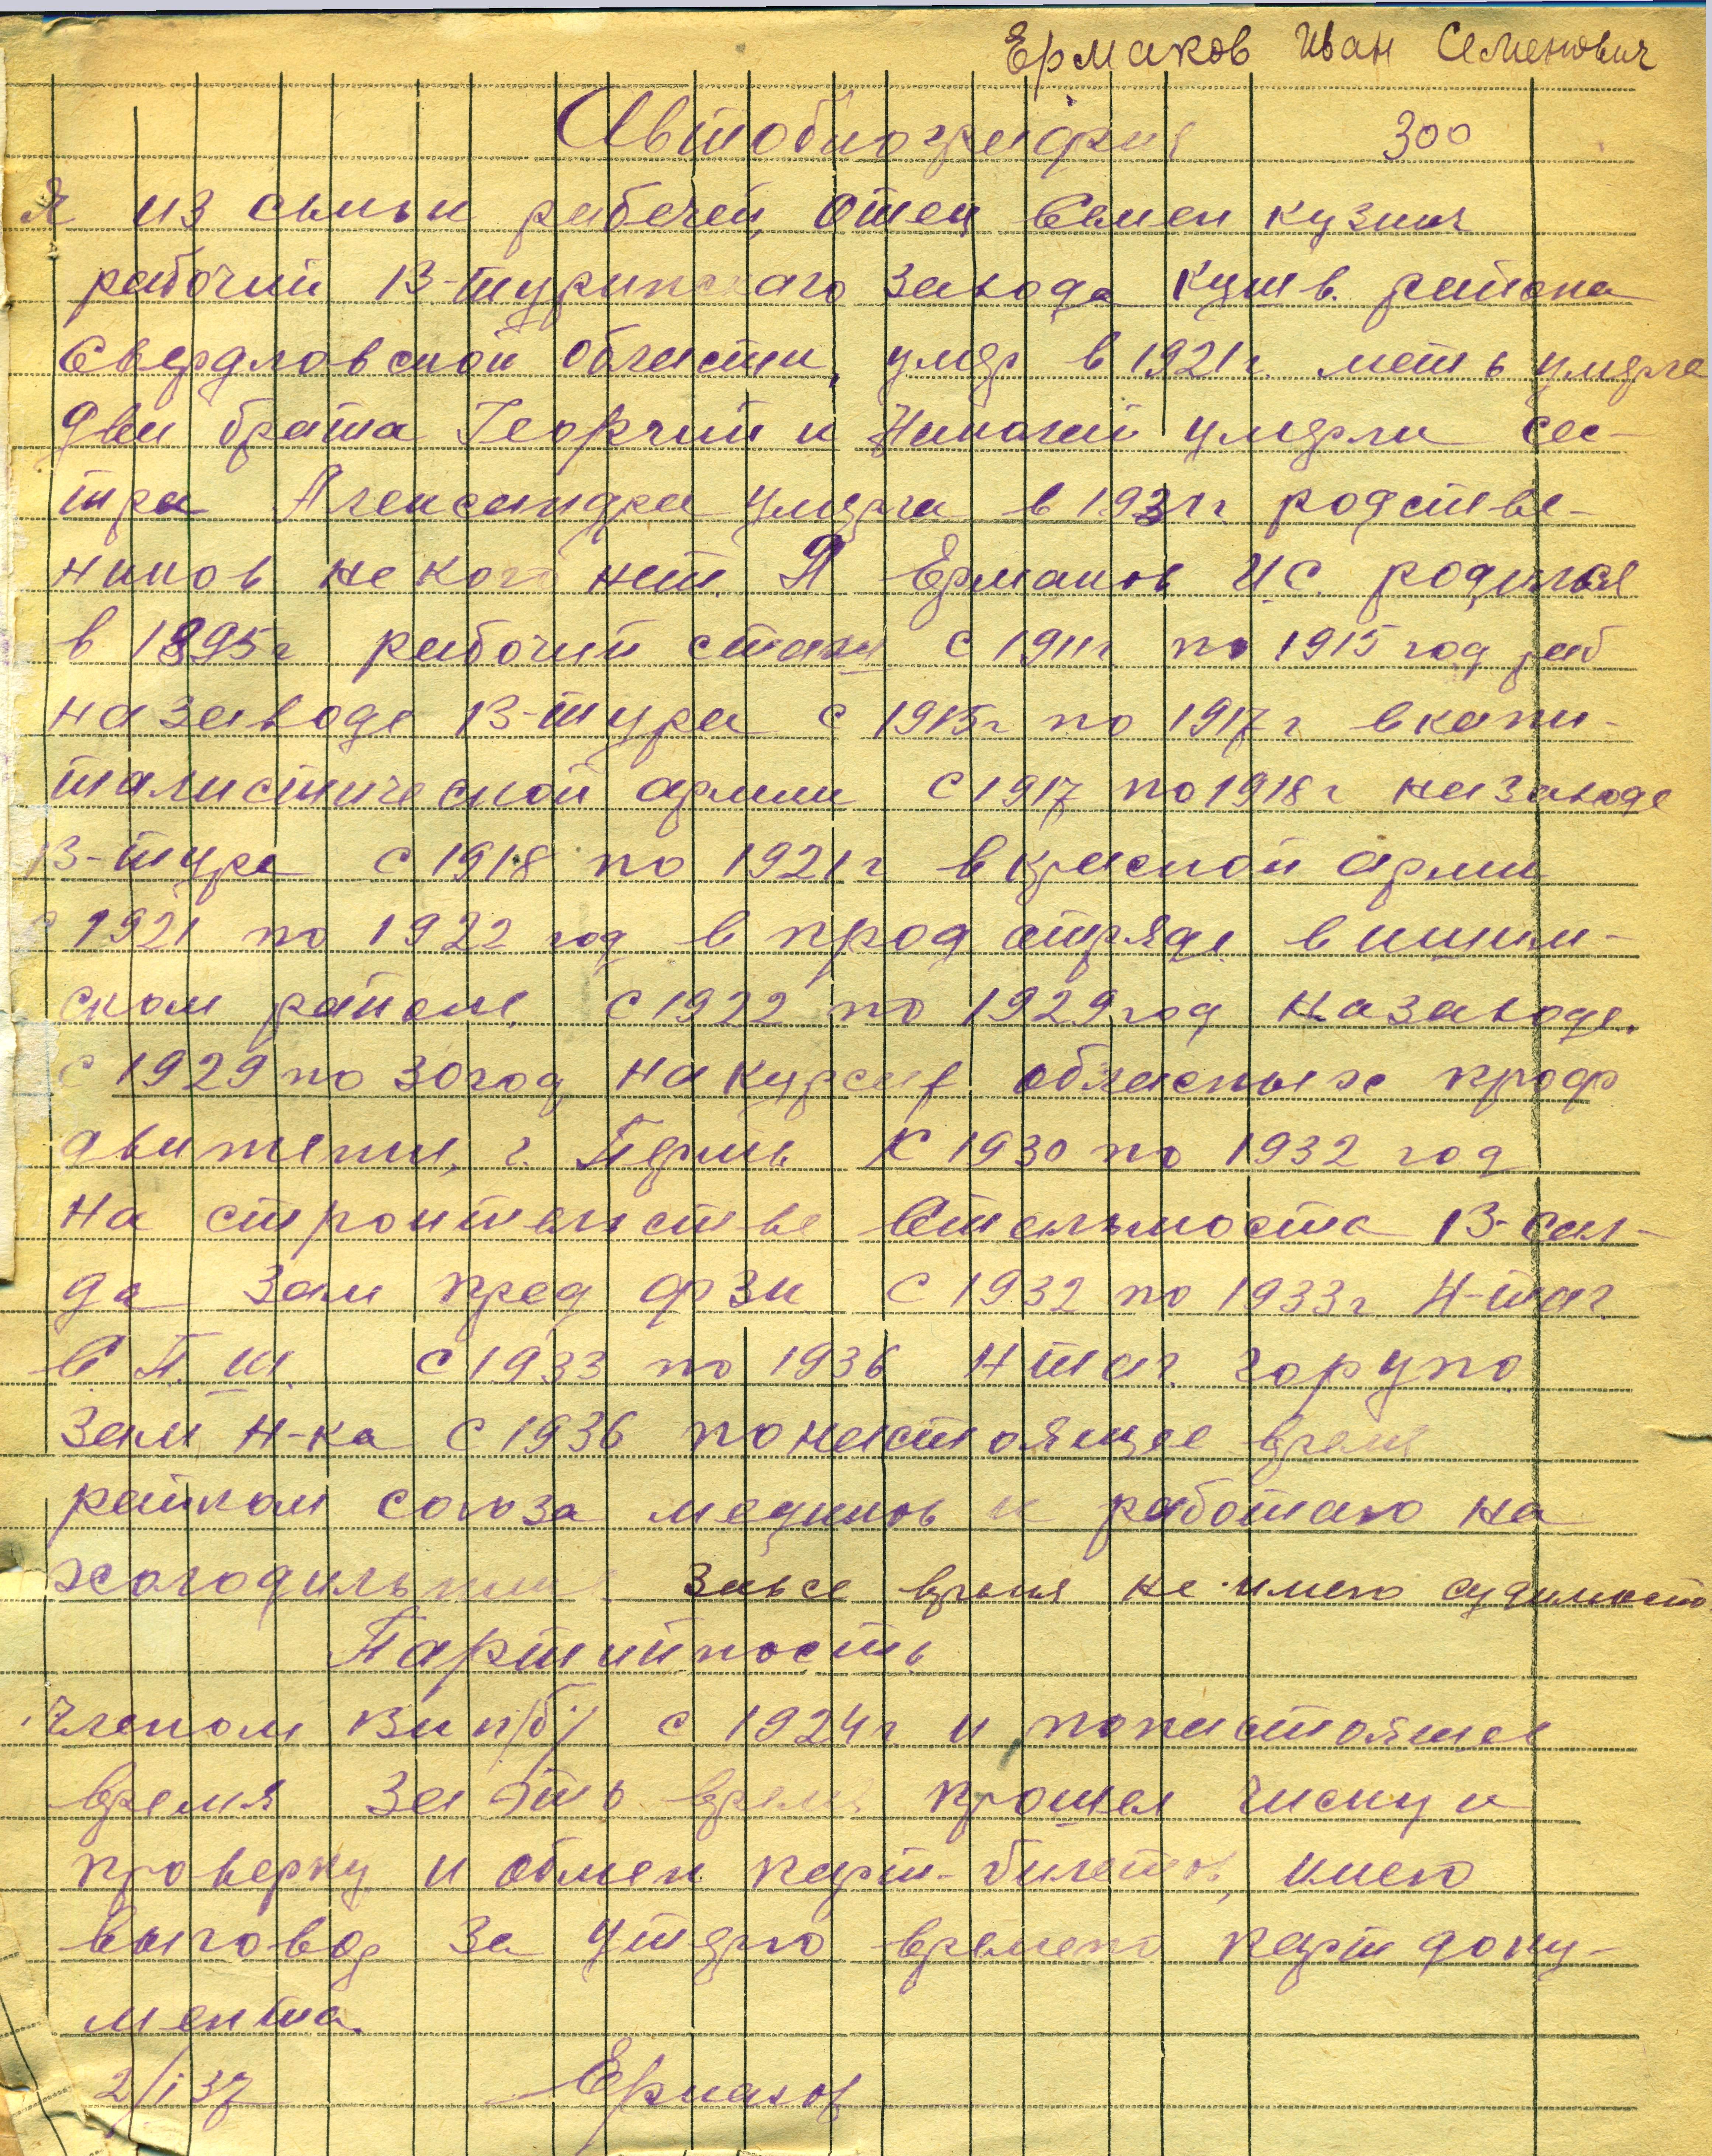 Ермаков Иван Семенович
Автобиография 300
Я из семьи рабочей, отец Семен кузмич
рабочий В-туринскаго завода Кушв. района
Свердловской области, умер в 1921 г. мать умерла
две брата Георгий и Николай умерли сес-
тра Александра умерла в 1931 г. родстве-
ников не кого нет. Я Ермаков И.С. родился
в 1895 г рабочий стаж с 1911 г по 1915 год раб
на заводе В-тура с 1915 г по 1917 г в капи-
талистической армии с 1917 по 1918 г на заводе
В-тура с 1918 по 1921 г в красной арми
с 1921 по 1922 год в прод отряде в ишим-
ском районе, с 1922 по 1929 год на заводе.
с 1929 по 30 год на курсах обласных проф
движения, г. Пермь С 1930 по 1932 год
на строительстве Стальмоста В-сал-
да зам пред фзк С 1932 по 1933 г Н-таг
С.П.Ш. с 1933 по 1936 Н таг. горупо
зам н-ка с 1936 по настоящее время
райком союза медиков и работаю на
холодильнике За все время не имею судимости
Партийность
Членом вкп/б/ с 1924 г и по настоящее
время за это время прошел чиску и
проверку и обмен парт-билетов, имею
выговор за утерю времено парт доку-
мента.
2/I 37 Ермаков